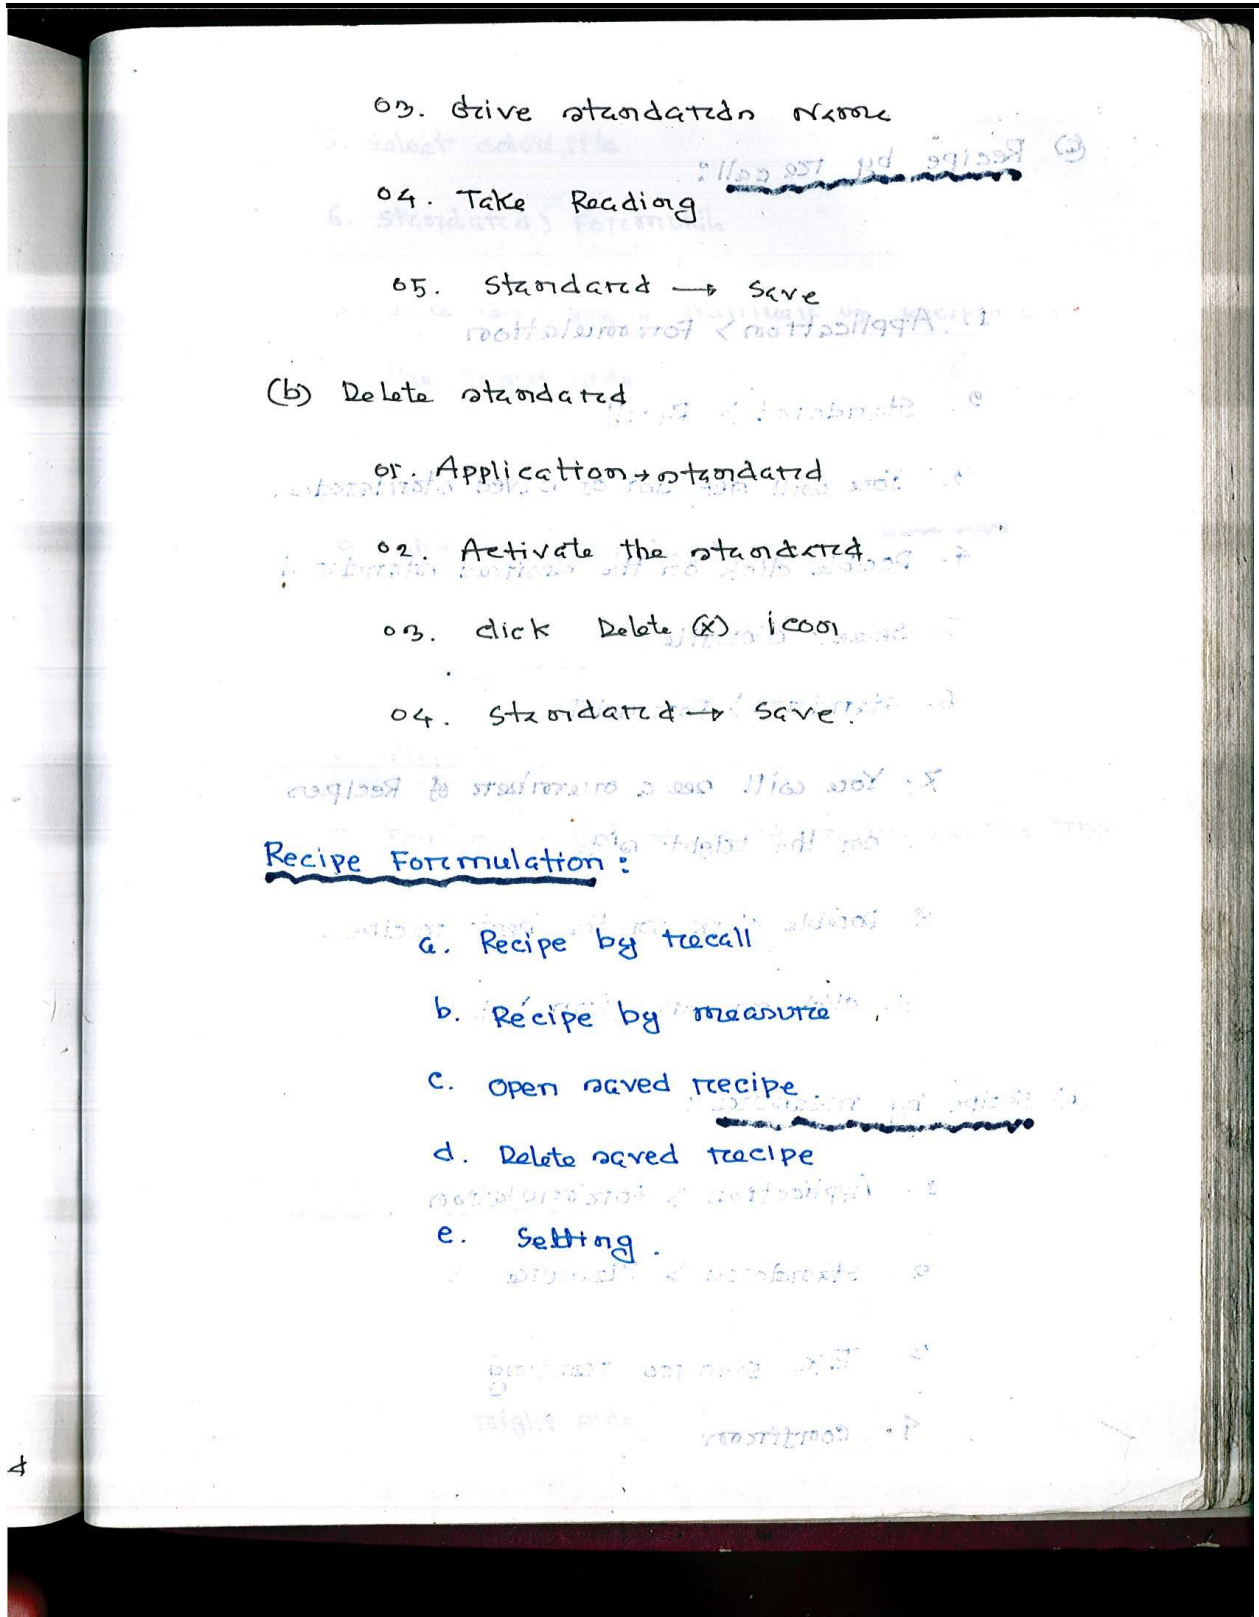 03. Give standards Name
04. Take Reading
05. Standard → Save
(b) Delete standard
01. Application → standard
02. Activate the standard
03. click Delete (x) icon
04. Standard → Save.
Recipe Formulation :
a. Recipe by recall
b. Recipe by measure
c. Open saved recipe.
d. Delete saved recipe
e. Setting.